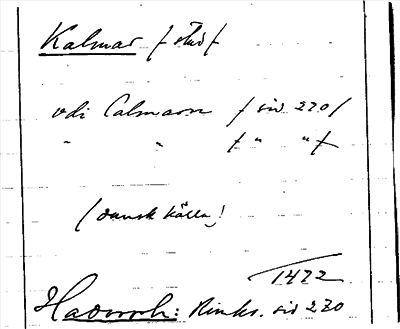 Kalmar / stad /
vdi Calmarn / sid 270 /
" " / " " /
(dansk källa)
1472
Hadorph: Rimkr. sid 270